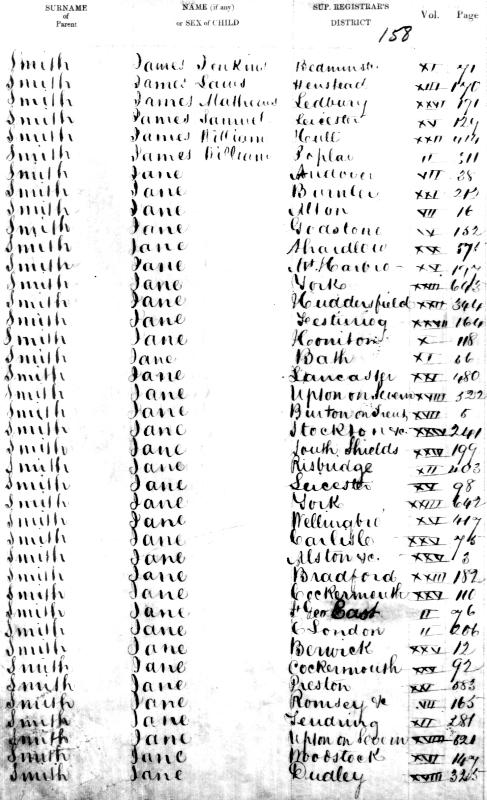 SURNAME of Parent NAME (if any) or SEX of CHILD SUP. REGISTRAR'S DISTRICT Vol. Page
158
Smith James Jenkins Bedminstr XI 71
Smith James Laws Henstead XIII
Smith James Mathews Ledbury XXVI 171
Smith James Samuel Leicester XV 129
Smith James William Hull XXII
Smith James William Poplar II 311
Smith Jane Andover VII 38
Smith Jane Burnley XXI
Smith Jane Alton VII 16
Smith Jane Godstone 152
Smith Jane Shardlow XIX
Smith Jane Mt. Harbro XV
Smith Jane York XXIII 643
Smith Jane Huddersfield XXII 344
Smith Jane Festiniog XXVII 164
Smith Jane Honiton X 118
Smith Jane Bath XI 66
Smith Jane Lancaster XXI 480
Smith Jane Upton on Severn XVIII 522
Smith Jane Burton on Trent XVII 5
Smith Jane Stockton &c XXIV 241
Smith Jane South Shields XXIV 199
Smith Jane Risbridge XII 403
Smith Jane Leicester XV 98
Smith Jane York XXIII 642
Smith Jane Wellingbro XV 417
Smith Jane Carlisle XXV 76
Smith Jane Alston &c. XXV 3
Smith Jane Bradford XXIII 182
Smith Jane Cockermouth XXV 110
Smith Jane St Geo East II 76
Smith Jane E London II 206
Smith Jane Berwick XXV 12
Smith Jane Cockermouth XXV 92
Smith Jane Preston XXI 583
Smith Jane Romsey &c VII 165
Smith Jane Tendring XII 281
Smith Jane Upton on Severn XVIII 521
Smith Jane Woodstock XVI 147
Smith Jane Dudley XVIII 325